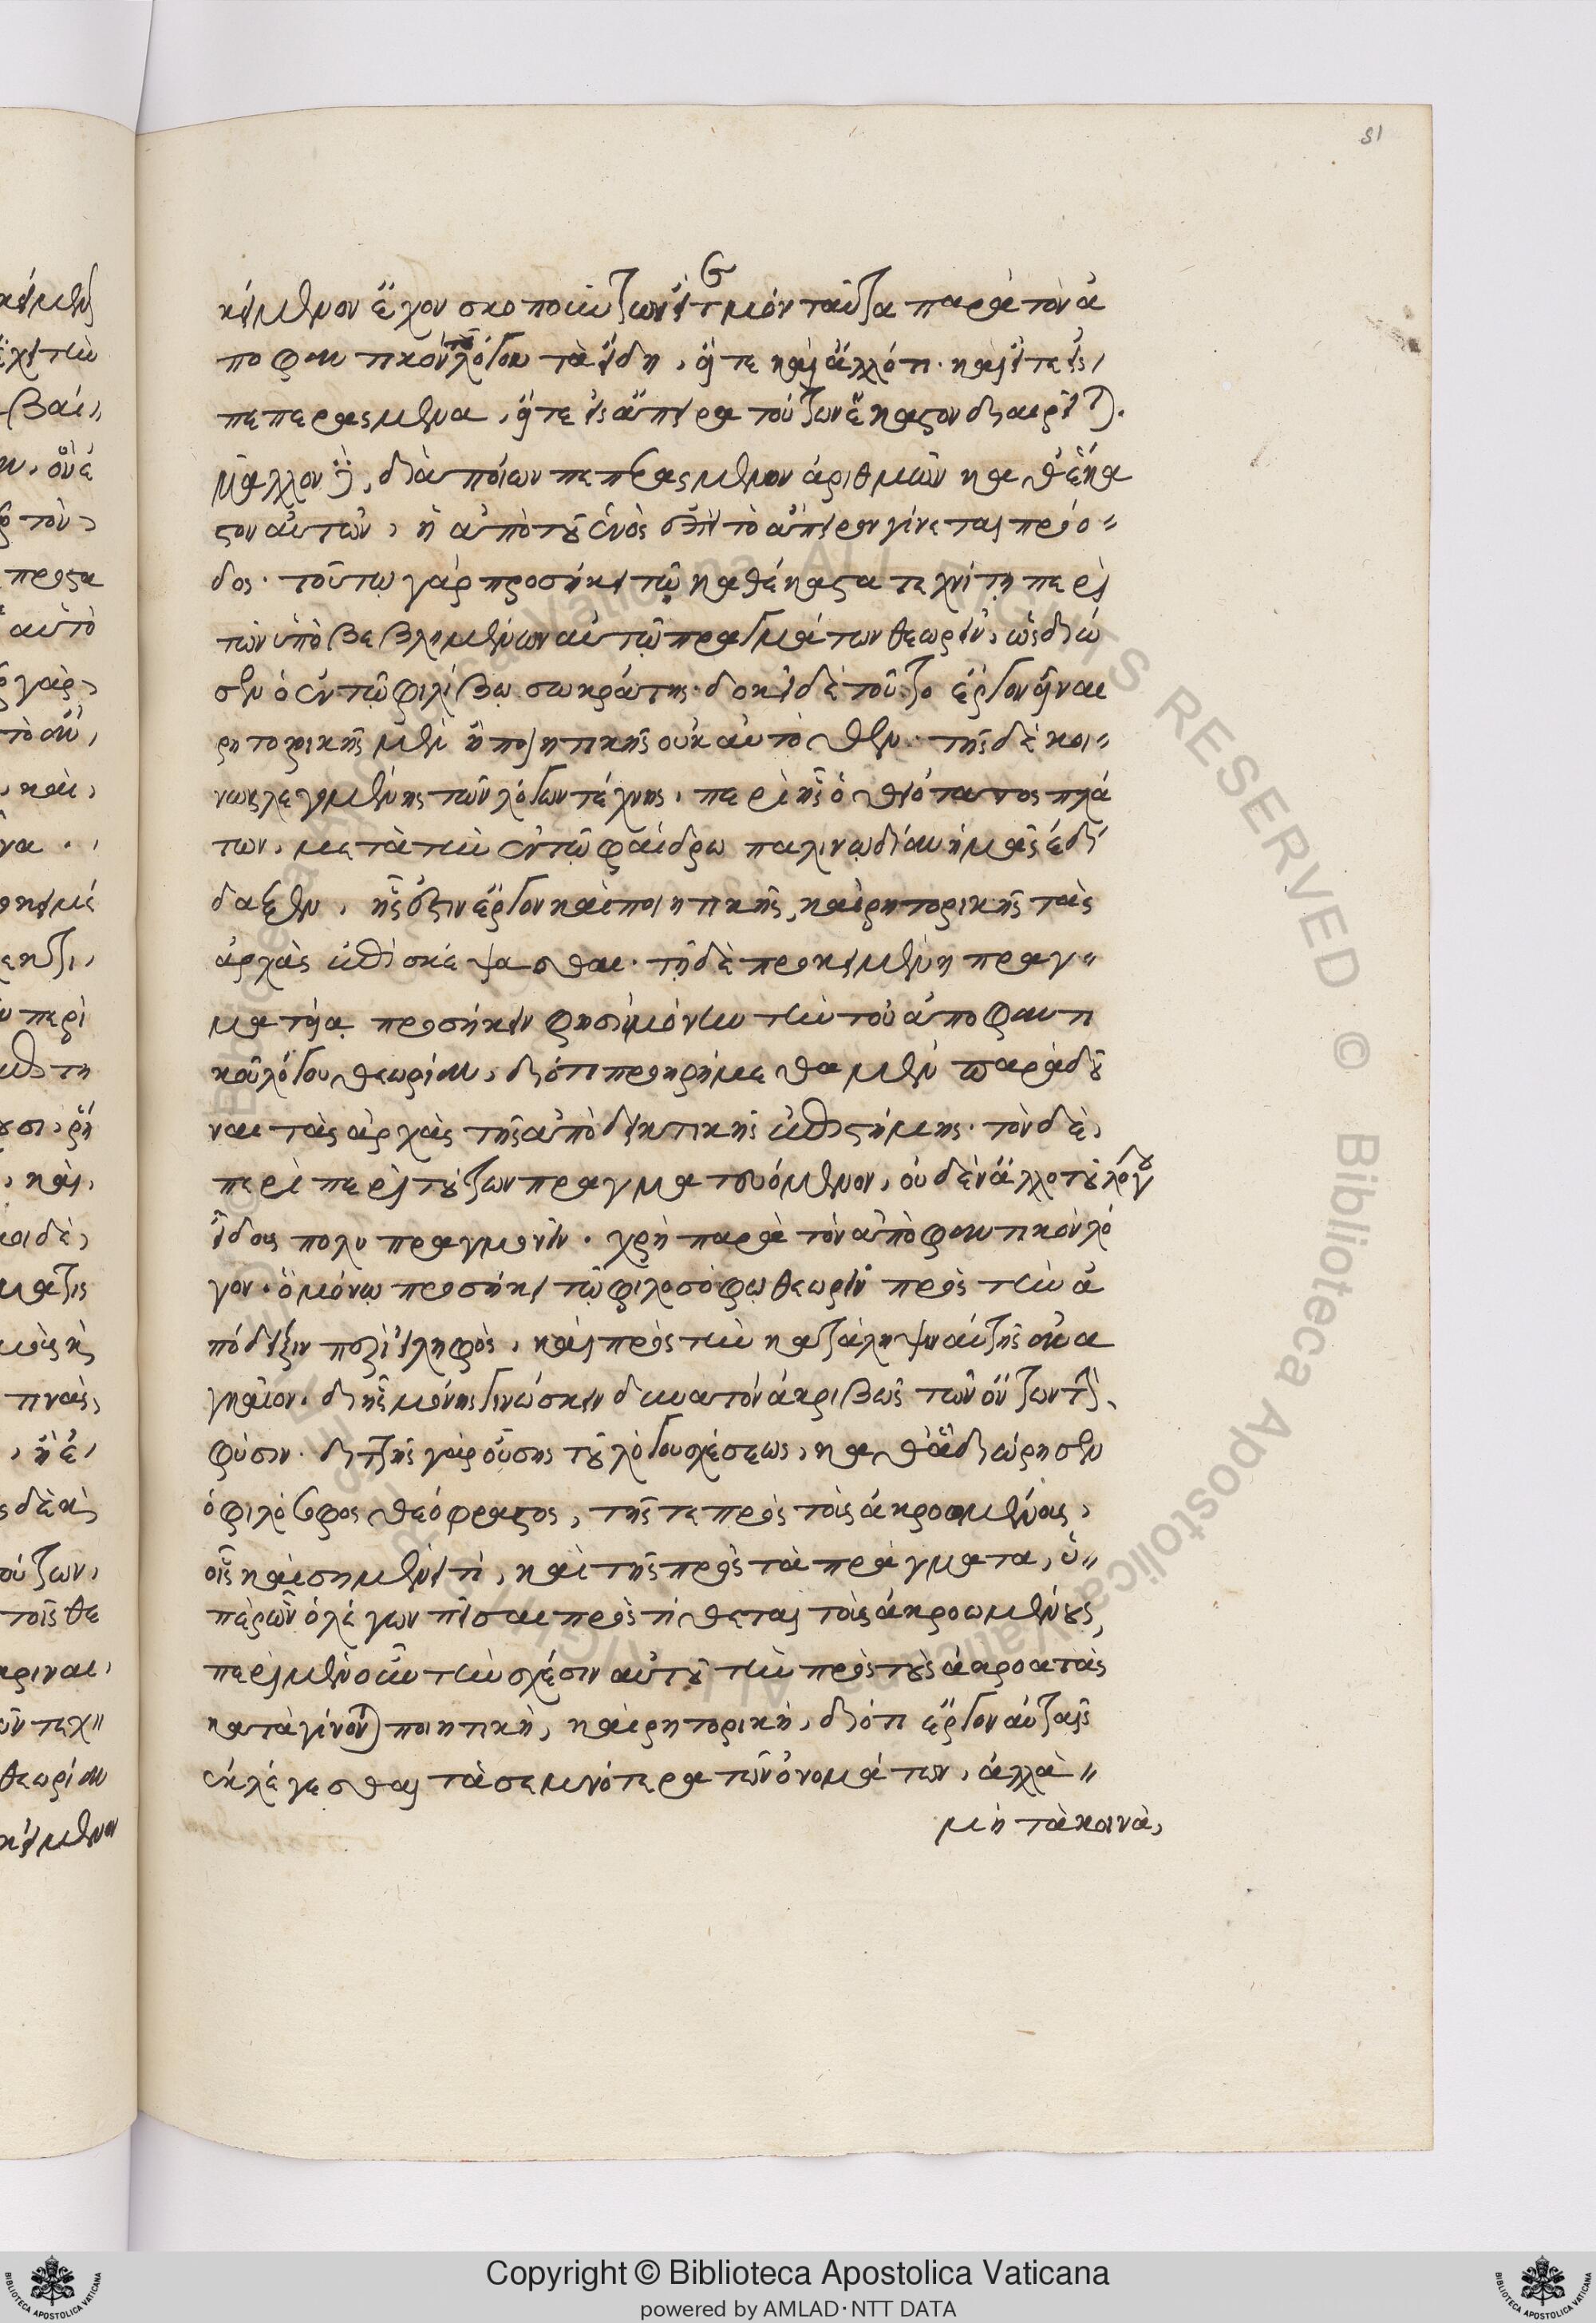 81
κείμενον ἔχον σκοπεῖν τῶν εἰ μὲν ταῦτα παρὰ τὸν ἀ
ποφαντικὸν λόγον τὰ εἴδη, εἴτε καὶ ἄλλό τι. καὶ εἴτε εἰς
πεπερασμένα, εἴτε εἰς ἄπειρα τούτων ἕκαστον διαιρεῖται.
μᾶλλον δὲ, διὰ ποίων πεπερασμένον ἀριθμῶν καθ' ἕκα
στον αὐτῶν, ἡ ἀπὸ τοῦ ἑνὸς ἐπὶ τὸ ἄπειρον γίνεται πρόο"
δος. τούτω γὰρ προσήκει τῷ καθέκαστα τεχνίτῃ περὶ
τῶν ὑποβεβλημένων αὐτῷ πραγμάτων θεωρεῖν, ὡς διώ
σεν ὁ ἐν τῷ φιλίβῳ σωκράτης. δοκεῖ δὲ τοῦτο ἔργον εἶναι
ρητορικῆς μὲν ἢ ποιητικῆς οὐκ αὐτόθεν. τῆς δὲ κοι"
νῶς λεγομένης τῶν λόγων τέχνης, περὶ ἧς ὁ θειότατος πλά
των, μετὰ τὴν ἐν τῷ φαίδρω παλινῳδίαν ἡμᾶς ἐδί
δαξεν, ἧς ἐστιν ἔργον καὶ ποιητικῆς, καὶ ρητορικῆς τὰς
ἀρχὰς ἐπισκέψασθαι. τῇ δὲ προκειμένῃ πραγ"
ματείᾳ προσήκειν φησὶ μόνην τὴν τοῦ ἀποφαντι
κοῦ λόγου θεωρίαν, διότι προηρήμεθα μὲν παραδοῦ
ναι τὰς ἀρχὰς τῆς ἀποδεικτικῆς ἐπιστήμης. τὸν δὲ,
περὶ περὶ τούτων πραγματευόμενον, οὐδὲν ἄλλο τοῦ λόγου
εἶδος πολυπραγμονεῖν. χρὴ παρὰ τὸν ἀποφαντικὸν λό
γον. ὃ μόνῳ προσήκει τῷ φιλοσόφῳ θεωρεῖν πρὸς τὴν ἀ
πόδειξιν παρειληφὸς, καὶ πρὸς τὴν κατάληψιν αὐτῆς ἀνα
γκαῖον. δι' ἧς μόνης γινώσκειν δυνατὸν ἀκριβῶς τῶν ὄντων τὴν
φύσιν. διττῆς γὰρ οὔσης τοῦ λόγου σχέσεως, καθ' ἃ διώρησεν
ὁ φιλόσοφος θεόφραστος, τῆς τε πρὸς τοὺς ἀκροωμένους,
οἷς καὶ σημαίνει τὶ, καὶ τῆς πρὸς τὰ πράγματα, ὑ"
πὲρ ὧν ὁ λέγων πεῖσαι προτίθεται τοὺς ἀκροωμένους,
περὶ μὲν οὖν τὴν σχέσιν αὐτοῦ τὴν πρὸς τοὺς ἀκροατὰς
καταγίνονται ποιητικὴ, καὶ ρητορικὴ, διότι ἔργον αὐταῖς
ἐκλέγεσθαι τὰ σεμνότερα τῶν ὀνομάτων, ἀλλὰ"
μὴ τὰ κοινὰ,
Copyright © Biblioteca Apostolica Vaticana
powered by AMLAD·NTT DATA